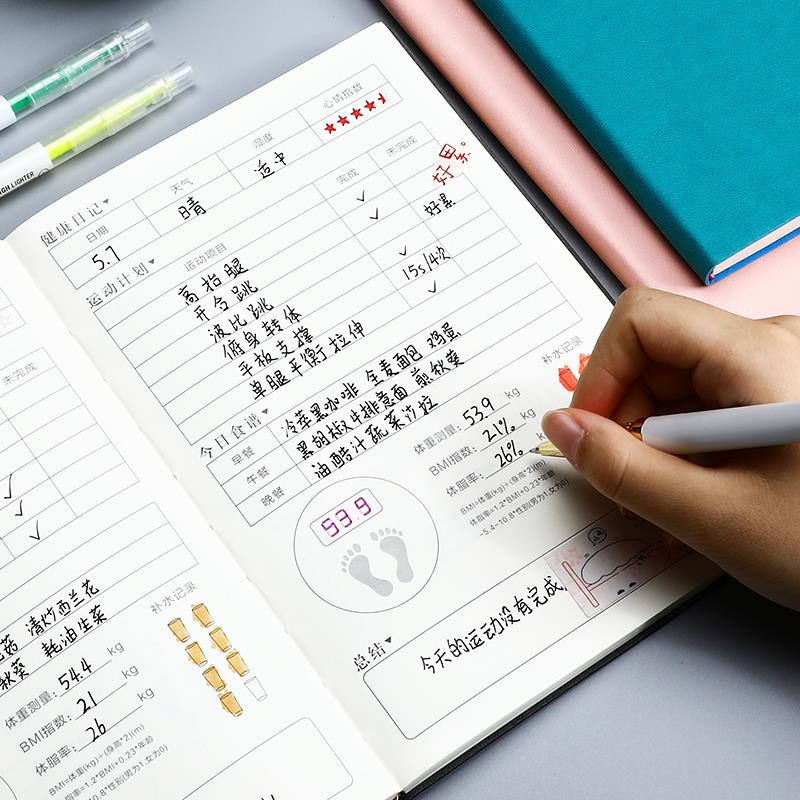 HIGH LIGHTER
健康日记
日期
天气
湿度
心情指数
5.7
晴
适中
运动计划
运动项目
完成
未完成
好累。
高抬腿 ✓
开合跳 ✓
好累
波比跳
俯身转体 ✓
平板支撑 15s/4次
单腿平衡拉伸 ✓
今日食谱
早餐 冷萃黑咖啡 全麦面包 鸡蛋
午餐 黑胡椒牛排意面 煎秋葵
晚餐 油醋汁蔬菜沙拉
补水记录
体重测量: 53.9 kg
BMI指数: 21% kg
体脂率: 26%
BMI=体重(kg)÷(身高*2)(m)
体脂率=1.2*BMI+0.23*年龄
-5.4-10.8*性别(男为1,女为0)
53.9
总结
今天的运动没有完成
未完成
✓
✓
✓
菇 清炒西兰花
秋葵 耗油生菜
补水记录
体重测量: 54.4 kg
BMI指数: 21 kg
体脂率: 26 kg
BMI=体重(kg)÷(身高*2)(m)
体脂率=1.2*BMI+0.23*年龄
10.8*性别(男为1,女为0)